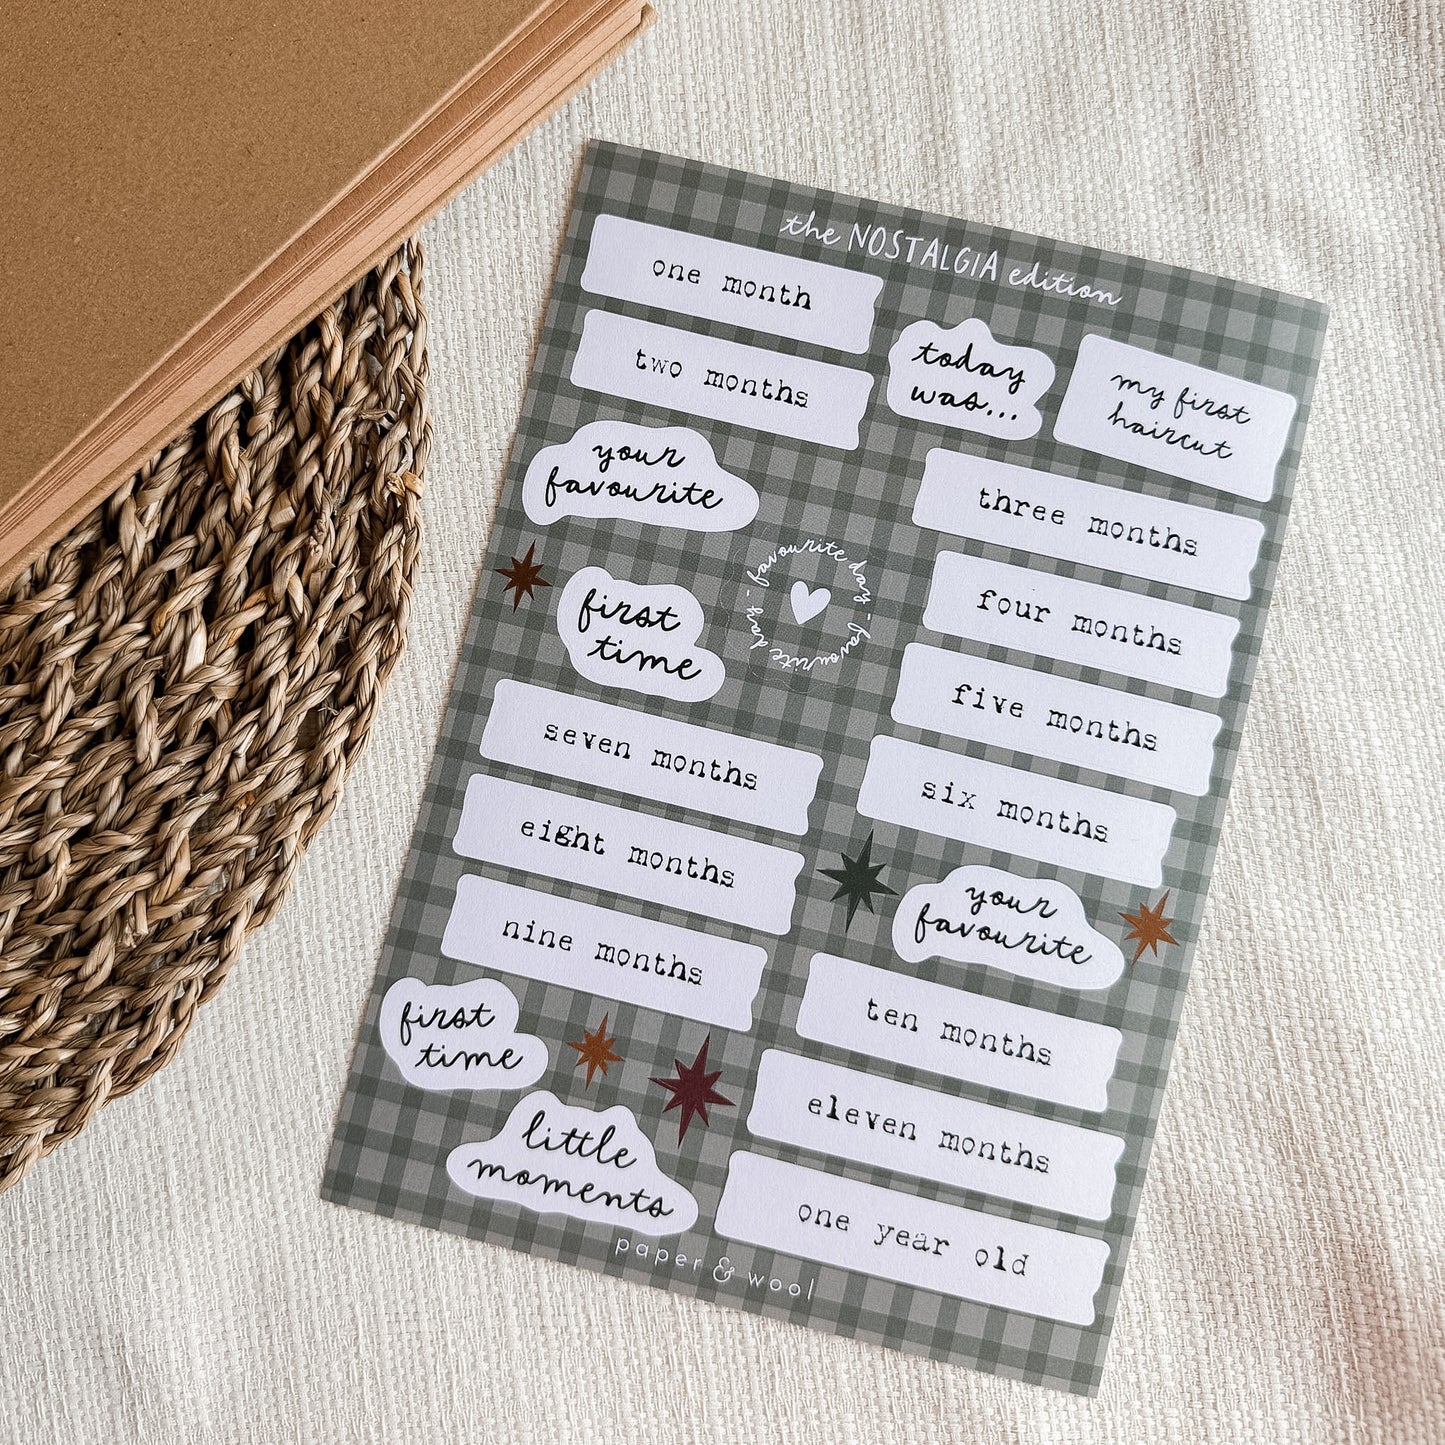 the NOSTALGIA edition
one month
two months
today
was...
my first
haircut
your
favourite
three months
- favourite day - favourite day
first
time
four months
five months
seven months
six months
eight months
your
favourite
nine months
ten months
first
time
eleven months
little
moments
one year old
paper & wool